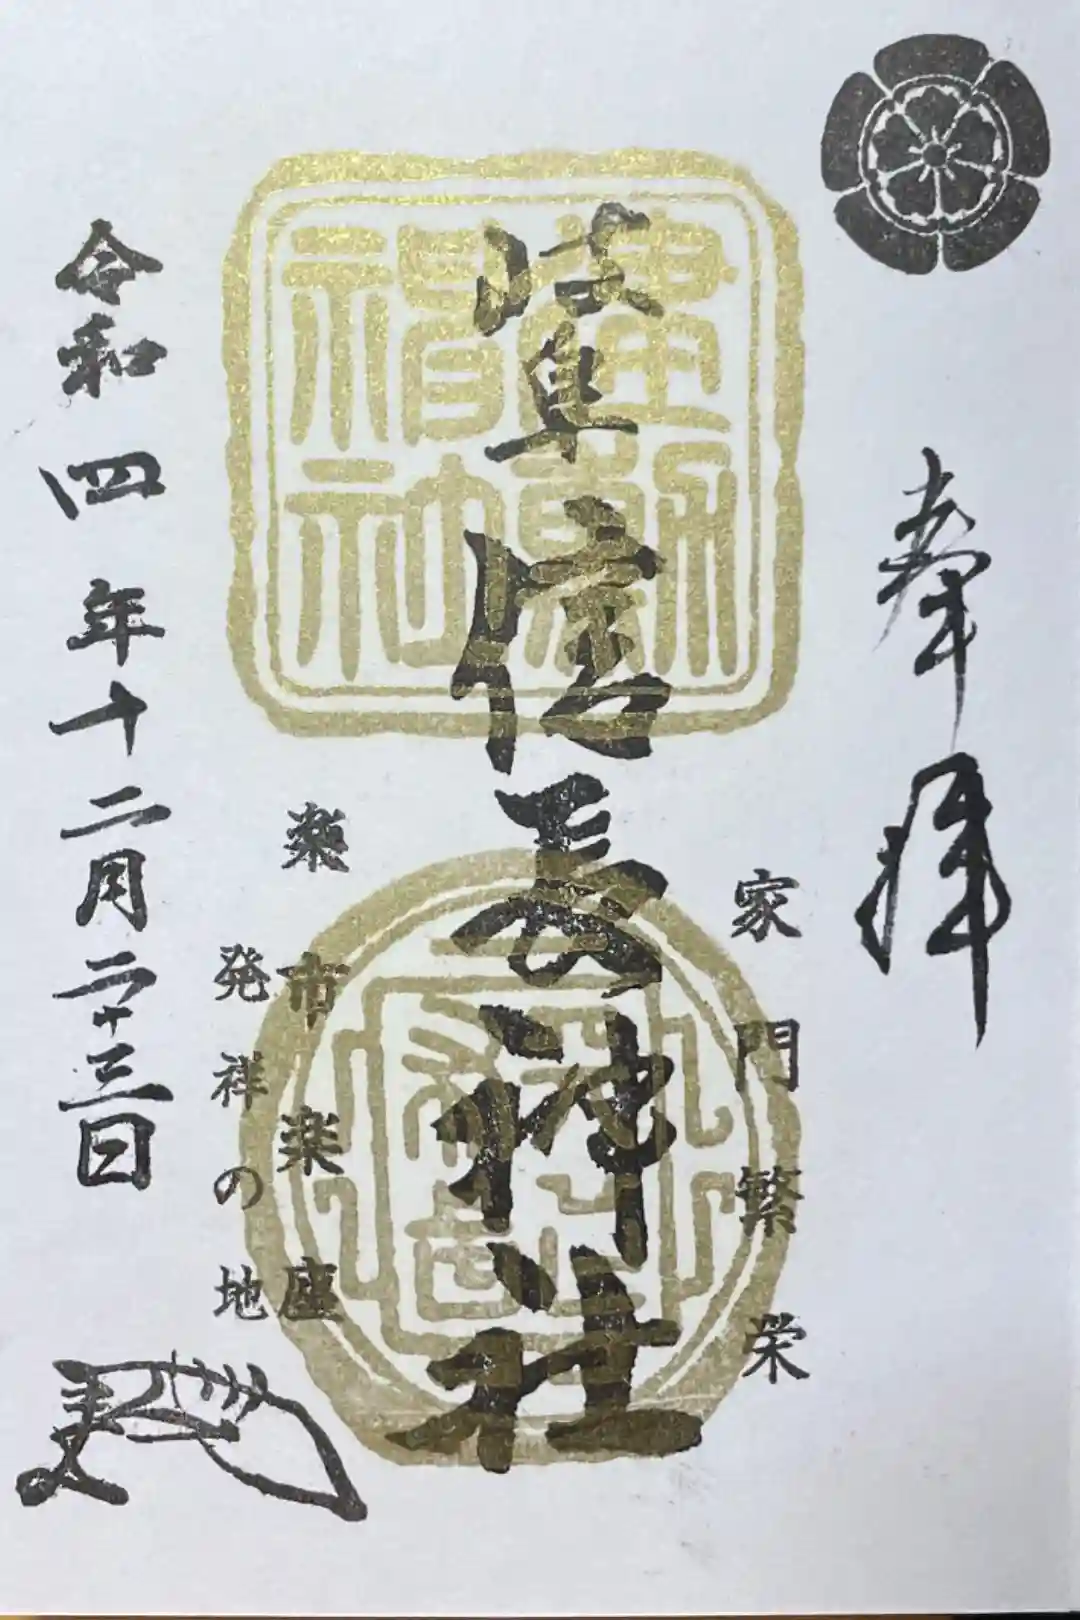 奉拝
家門繁栄
岐阜信長神社
楽市楽座
発祥の地
令和四年十二月二十三日